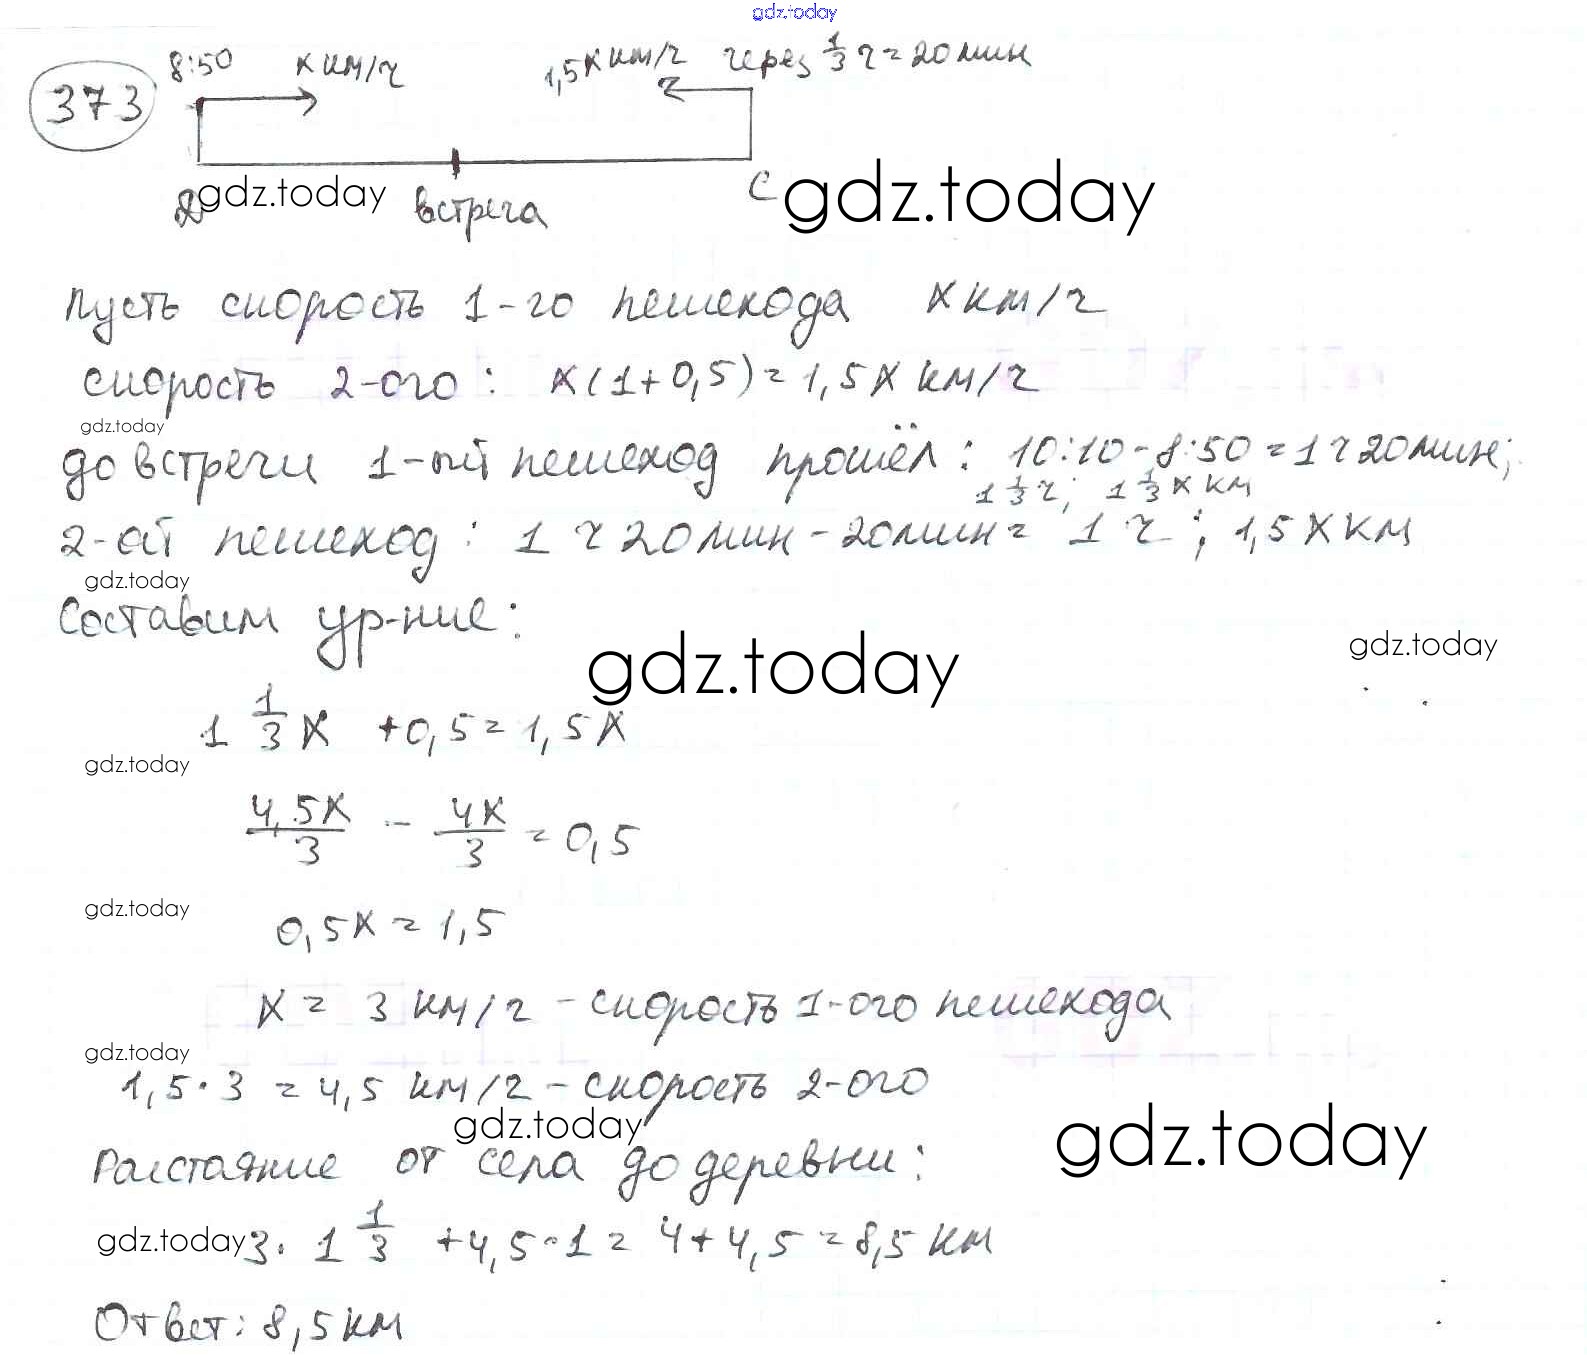 gdz.today
373
8:50 x км/ч 1,5x км/ч через 1/3 ч = 20 мин
Д gdz.today встреча С gdz.today
пусть скорость 1-го пешехода x км/ч
скорость 2-ого: x(1+0,5)=1,5x км/ч
gdz.today
до встречи 1-ый пешеход прошёл: 10:10-8:50=1 ч 20 мин;
1 1/3 ч; 1 1/3 x км
2-ой пешеход: 1 ч 20 мин - 20 мин = 1 ч; 1,5x км
gdz.today
Составим ур-ние:
gdz.today gdz.today
1 1/3 x +0,5=1,5x
gdz.today
4,5x/3 - 4x/3 = 0,5
gdz.today
0,5x = 1,5
x = 3 км/ч - скорость 1-ого пешехода
gdz.today
1,5·3 = 4,5 км/ч - скорость 2-ого
gdz.today gdz.today
Расстояние от села до деревни:
gdz.today 3· 1 1/3 +4,5·1= 4+4,5=8,5 км
Ответ: 8,5 км